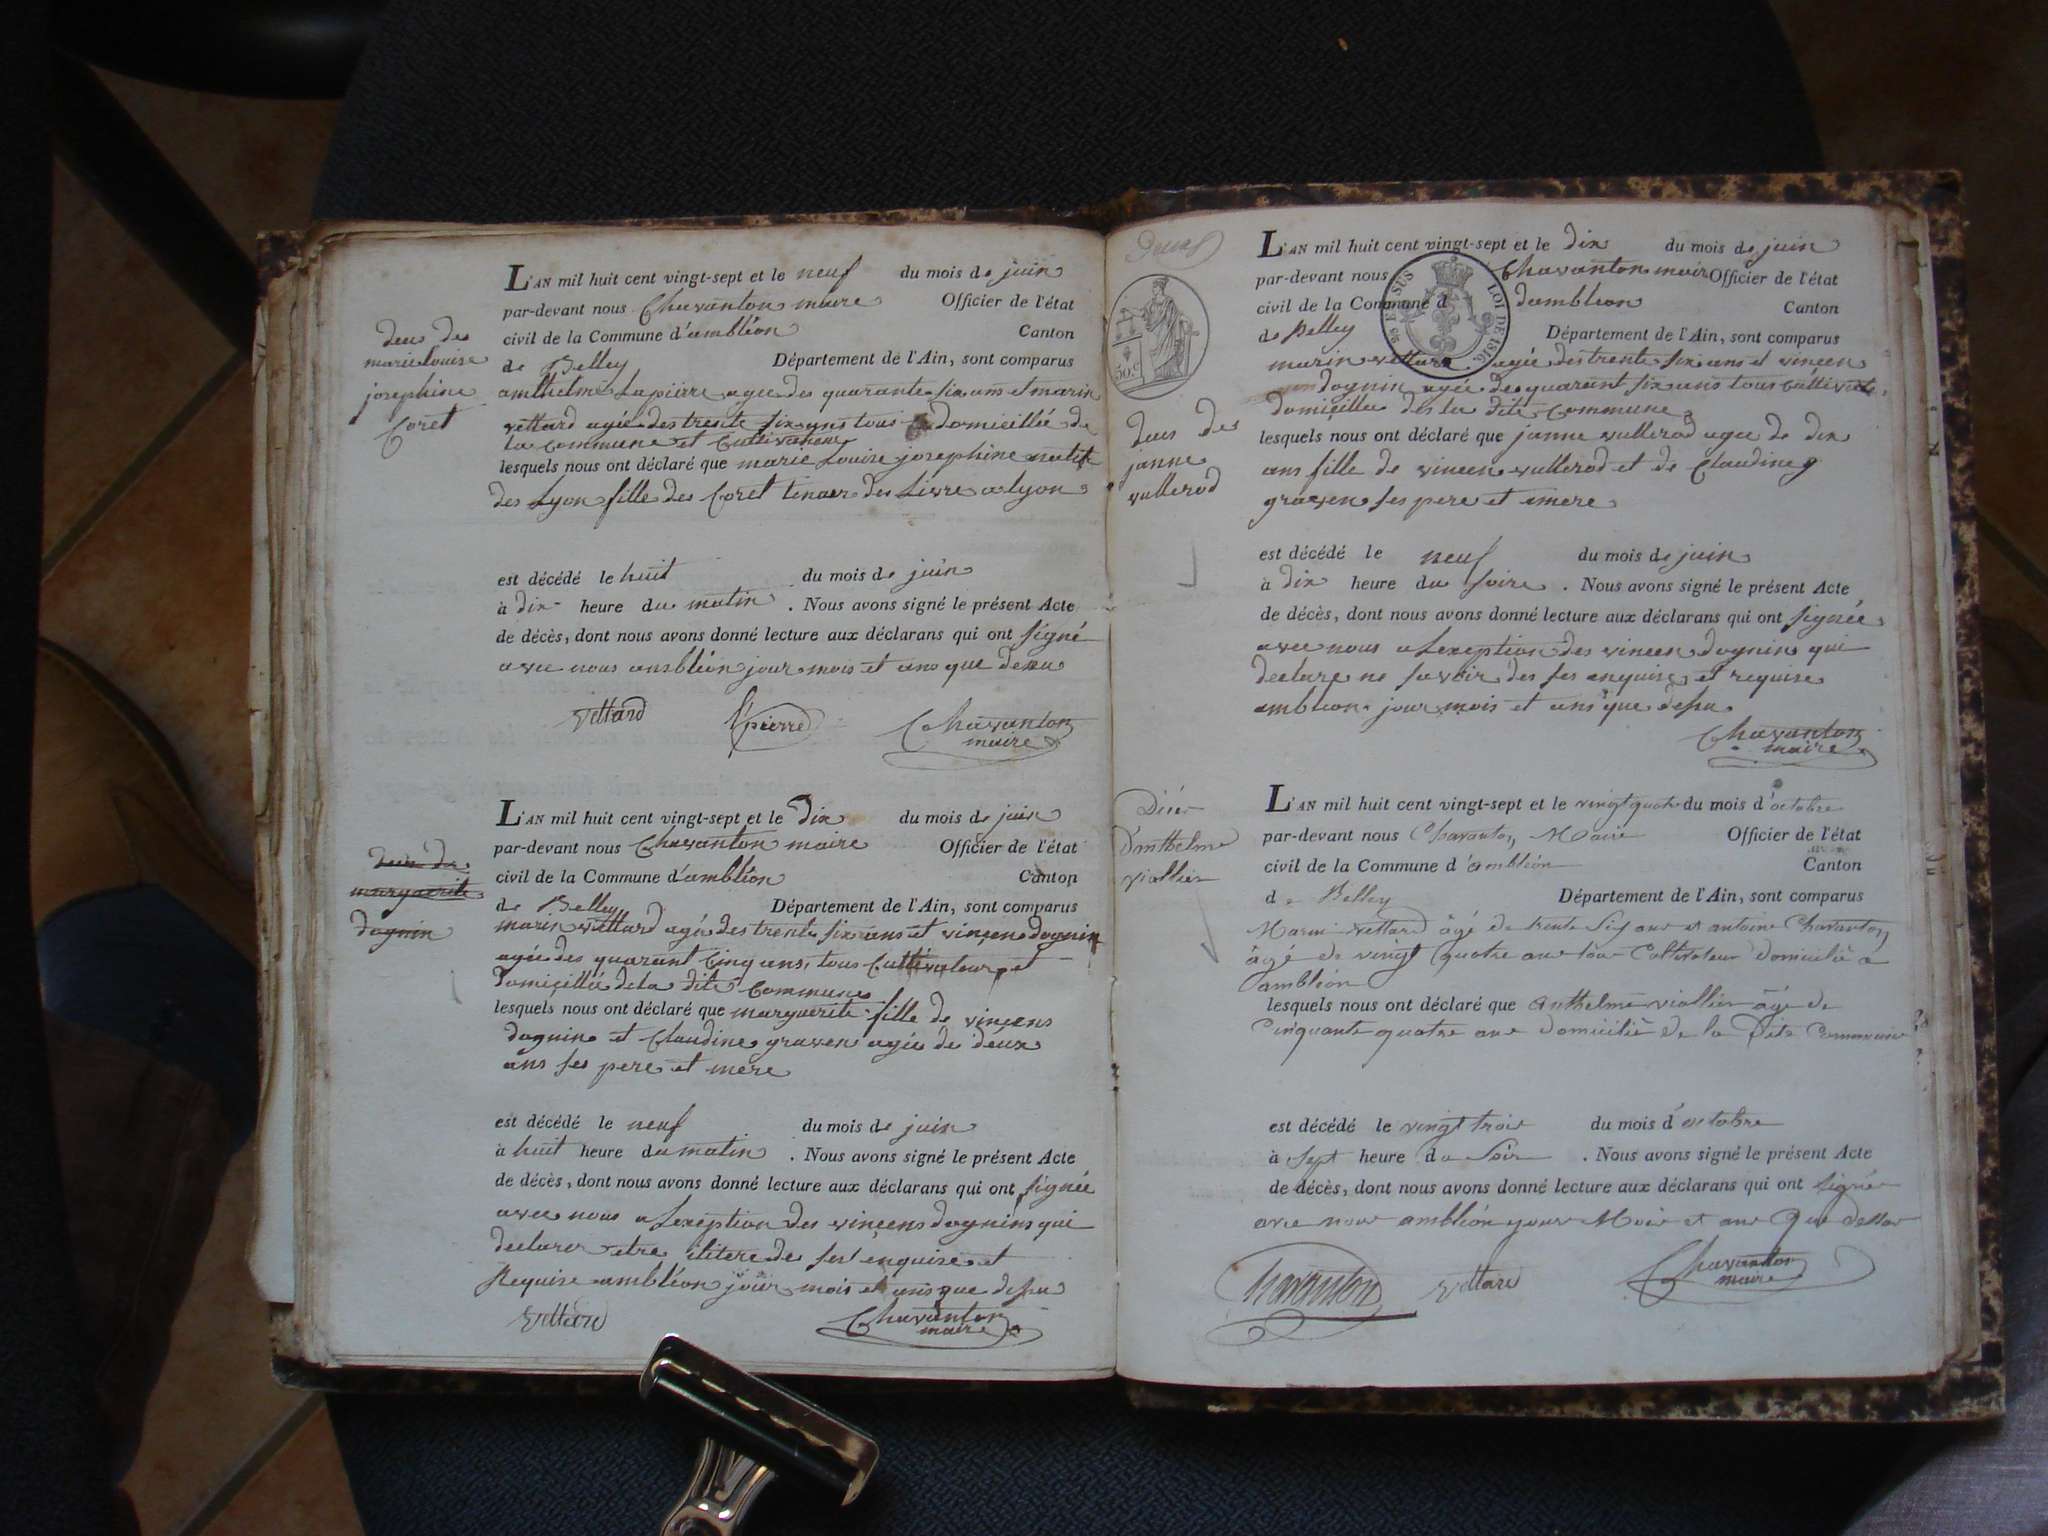 L'AN mil huit cent vingt-sept et le neuf du mois de juin
par-devant nous Chavanton maire Officier de l'état
civil de la Commune d'ambléon Canton
de Belley Département de l'Ain, sont comparus
anthelme Lapierre agee des quarante six ans et marin
vettard agée des trente six ans tous domicillée de
la commune et Cultivateur
lesquels nous ont déclaré que marie Louise josephine natif
des Lyon fille des Coret teneur des Livre a lyon
est décédé le huit du mois de juin
à dix heure du matin . Nous avons signé le présent Acte
de décès, dont nous avons donné lecture aux déclarans qui ont signé
avec nous ambléon jour mois et ans que desu
vettard Lpierre Chavanton
maire
deces des
marie louise
josephine
Coret
L'AN mil huit cent vingt-sept et le dix du mois de juin
par-devant nous Chavanton maire Officier de l'état
civil de la Commune d'ambléon Canton
de Belley Département de l'Ain, sont comparus
marin vettard agée des trente six ans et vincens dognin
agée des quarant cinq ans, tous Cultivateur et
domicillée de la dite commune
lesquels nous ont déclaré que marguerite fille de vincens
dognin et Claudine graven agée de deux
ans ses pere et mere
est décédé le neuf du mois de juin
à huit heure du matin . Nous avons signé le présent Acte
de décès, dont nous avons donné lecture aux déclarans qui ont signée
avec nous a Lexeption des vincens dognin qui
declarer etre ilitere de set enquise et
Requise ambléon jour mois et ans que desu
vettard Chavanton
maire
marguerite
dognin
L'AN mil huit cent vingt-sept et le dix du mois de juin
par-devant nous Chavanton maire Officier de l'état
civil de la Commune d dambléon Canton
de Belley Département de l'Ain, sont comparus
marin vettard agée des trente six ans et vincen
dognin agée des quarant six ans tous cultivat
domicillee des la dite commune
lesquels nous ont déclaré que janne vullerod agee de dix
ans fille de vincen vullerod et de Claudine
graven ses pere et mere
est décédé le neuf du mois de juin
à dix heure du soire . Nous avons signé le présent Acte
de décès, dont nous avons donné lecture aux déclarans qui ont signée
avec nous a Lexeption des vincen dognin qui
declare ne savoir des ses enquise et requise
ambleon jour mois et ans que desu
Chavanton
maire
50 c.
EN SUS LOI DE 1816
deces des
janne
vullerod
L'AN mil huit cent vingt-sept et le vingt quatre du mois d'octobre
par-devant nous Chavanton Maire Officier de l'état
civil de la Commune d'ambléon Canton
de Belley Département de l'Ain, sont comparus
Marin vettard âgé de trente six ans et antoine Chavanton
âgé de vingt quatre ans tous Cultivateur domicilié a
ambléon
lesquels nous ont déclaré que anthelme viallier âgé de
Cinquante quatre ans domicilié de la dite Commune
est décédé le vingt trois du mois d'octobre
à sept heure du soir . Nous avons signé le présent Acte
de décès, dont nous avons donné lecture aux déclarans qui ont signé
avec nous ambléon jour Mois et ans Que dessus
Chavanton vettard Chavanton
maire
Décès
D'anthelme
viallier